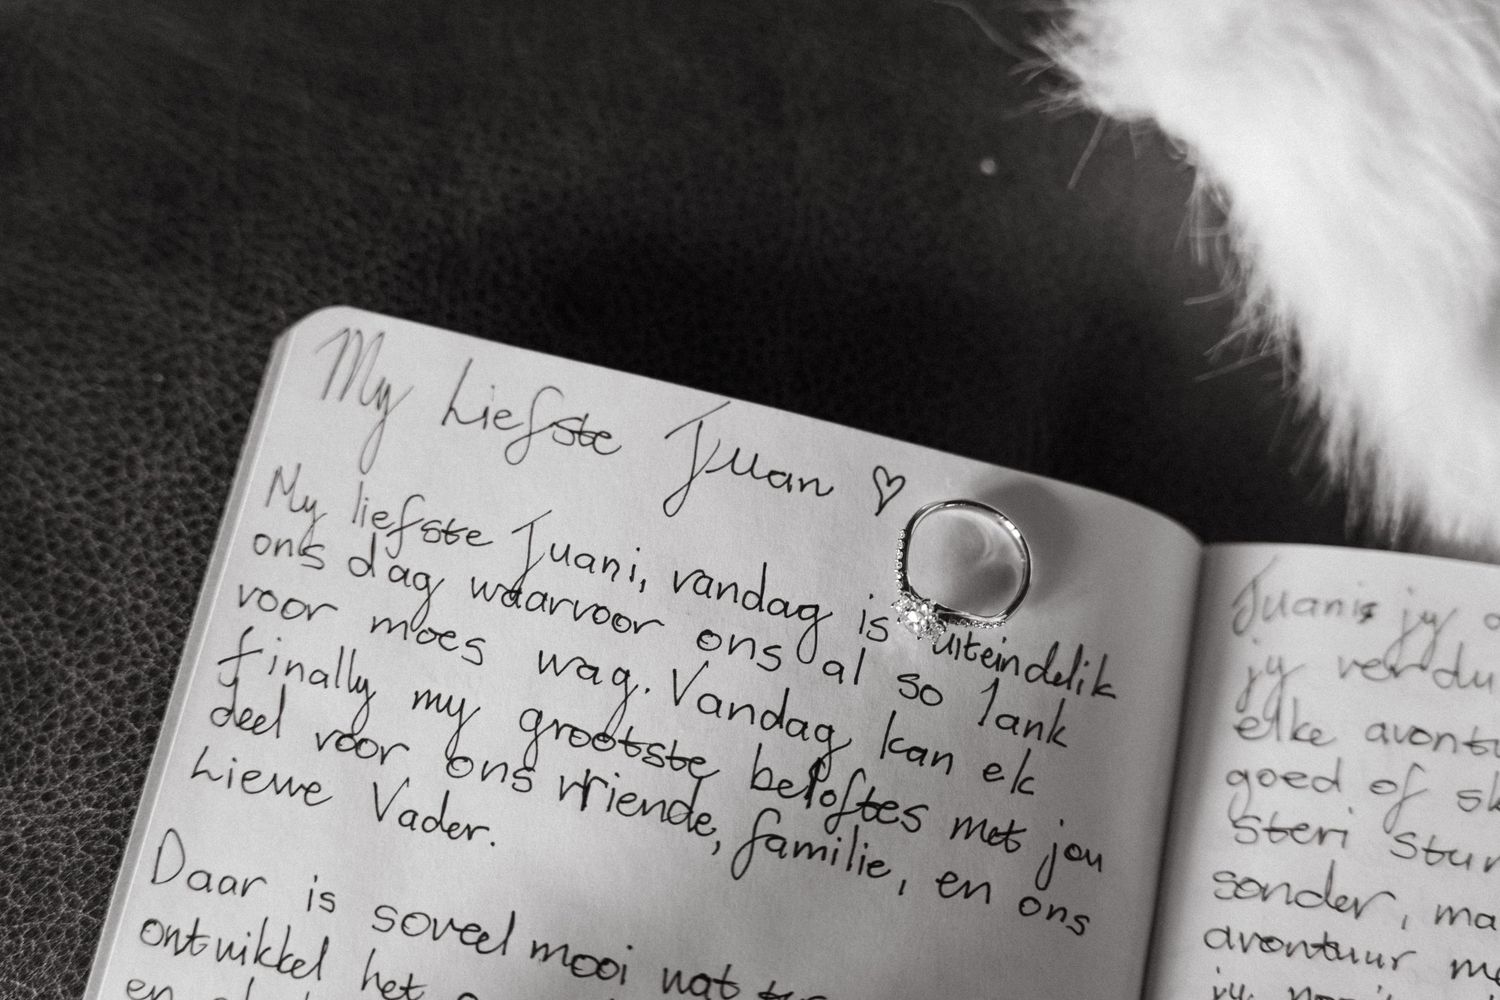 My Liefste Juan ♡
My liefste Juani, vandag is uiteindelik
ons dag waarvoor ons al so lank
voor moes wag. Vandag kan ek
finally my grootste beloftes met jou
deel voor ons vriende, familie, en ons
Liewe Vader.
Daar is soveel mooi wat
ontwikkel het
en
Juanie jy
jy
elke
goed of
sonder,
avontuur
jy